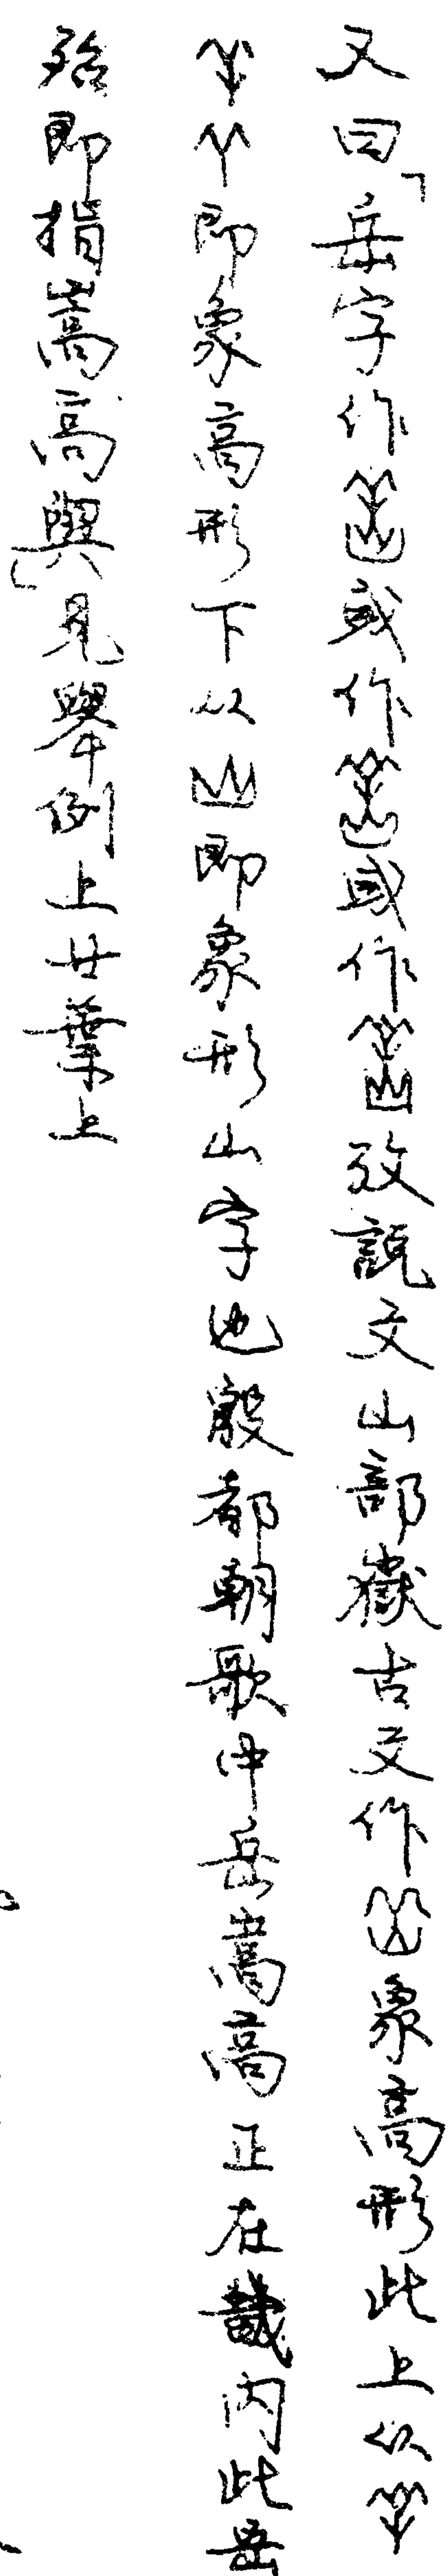 又曰「岳字作或作或作攷說文山部嶽古文作象高形此上从
即象高形下从即象形山字也殷都朝歌中岳嵩高正在畿內此岳
殆即指嵩高與」見舉例上廿葉上